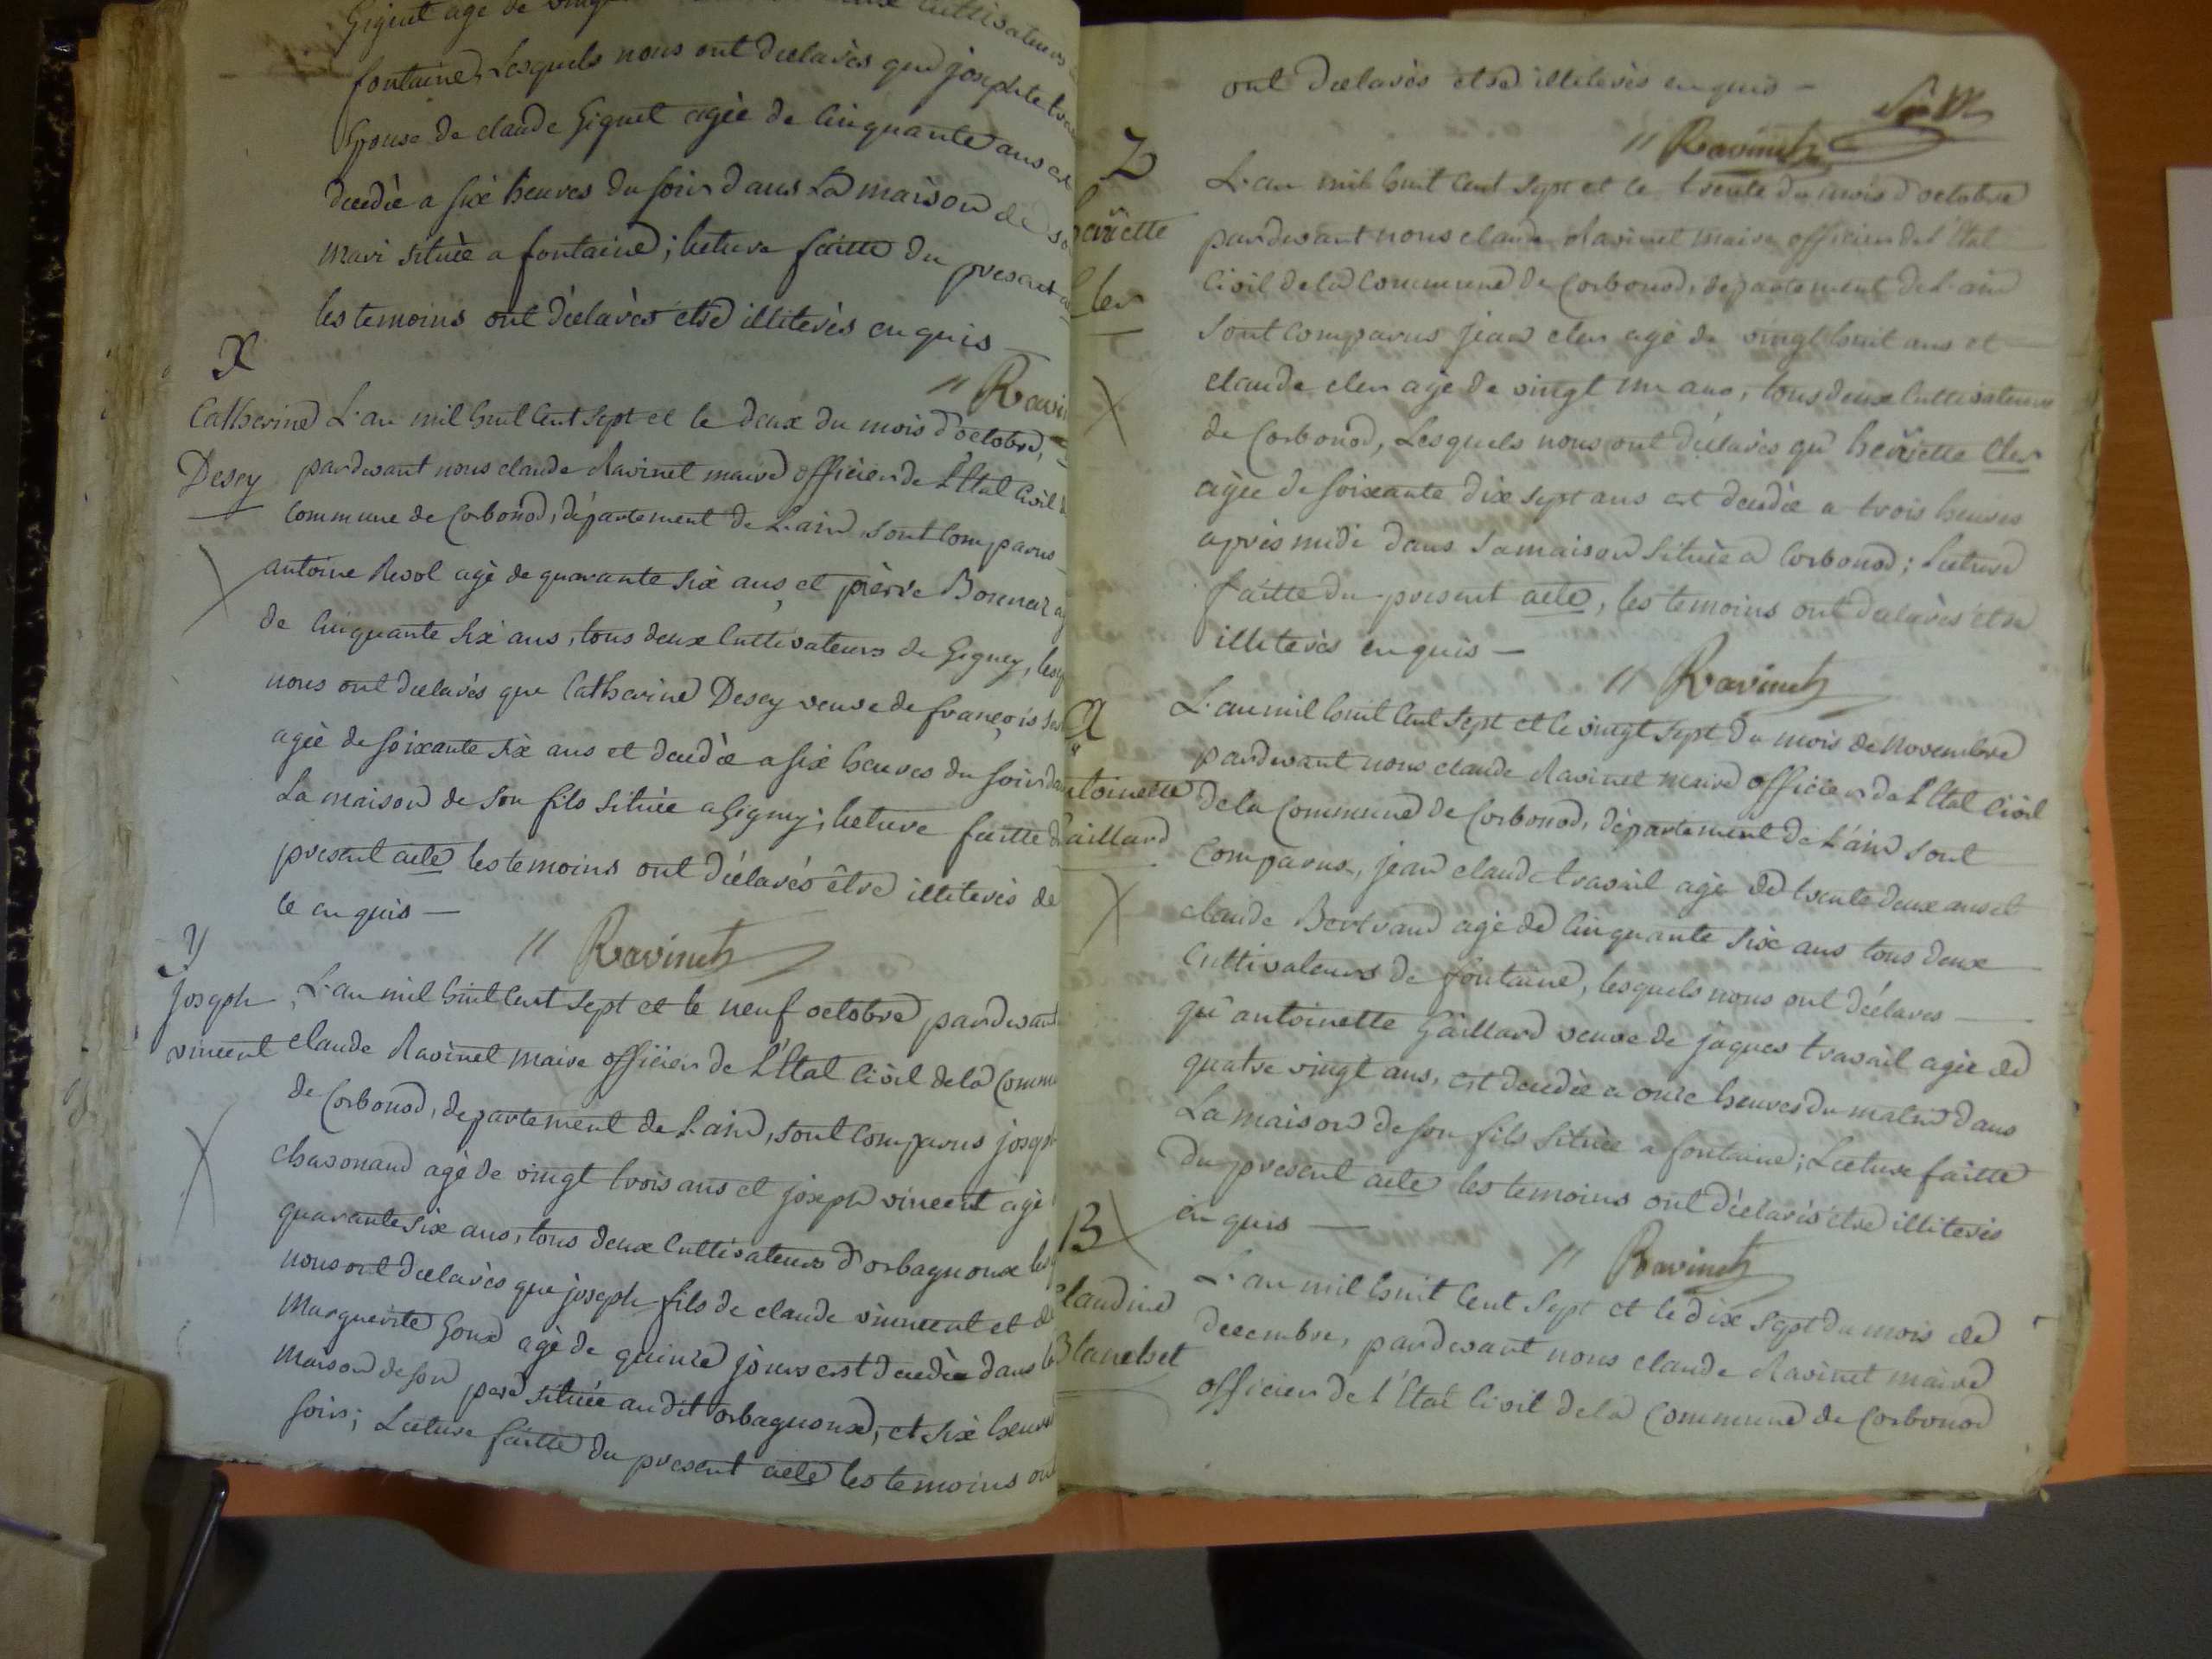 Giguet agé de vingt cultivateurs
fontaine, Lesquels nous ont déclarés que josephte
Epouse de claude Giguet agée de cinquante ans est
decedée a six heures du soir dans La maison de
mari située a fontaine; lecture faitte du present
les temoins ont déclarés etre illiterés enquis —
" Ravi
X
Catherine
Desey
L'an mil huit cent sept et le deux du mois d'octobre,
pardevant nous claude Ravinet maire officier de l'Etat civil
commune de Corbonod, département de L'ain sont comparus
antoine Revol agé de quarante six ans, et pierre Bonnaz
de cinquante six ans, tous deux cultivateurs de Gigney,
nous ont declarés que Catherine Desey veuve de françois
agée de soixante six ans et decedée a six heures du soir
La maison de son fils située a Gigney; lecture faitte
present acte les temoins ont déclarés être illiterés de
ce enquis —
" Ravinet
y
joseph
vincent
L'an mil huit cent sept et le neuf octobre pardevant
claude Ravinet maire officier de l'Etat civil de la
de Corbonod, departement de L'ain, sont comparus joseph
chavonand agé de vingt trois ans et joseph vincent agé
quarante six ans, tous deux cultivateurs d'orbagnoux
nous ont declarés que joseph fils de claude vincent et
Marguerite Goux agé de quinze jours est decedée dans
maison de son pere située audit orbagnoux, et six heures
soir; Lecture faitte du present acte les temoins
ont declarés etre illiterés enquis —
" Ravinet
Z
heriette
cler
L'an mil huit cent sept et le trente du mois d'octobre
pardevant nous claude Ravinet maire officier de l'Etat
civil de la Commune de Corbonod, département de L'ain
sont comparus jean cler agé de vingt huit ans et
claude cler agé de vingt un ans, tous deux cultivateurs
de Corbonod, Lesquels nous ont déclarés qu'heriette Cler
agée de soixante dix sept ans est decedée a trois heures
après midi dans sa maison située a Corbonod; Lecture
faitte du present acte, les temoins ont declarés etre
illiterés enquis —
" Ravinet
A
ntoinette
aillard
L'an mil huit cent sept et le vingt sept du mois de novembre
pardevant nous claude Ravinet maire officier de l'Etat civil
de la Commune de Corbonod, département de L'ain sont
comparus, jean claude travail agé de trente deux ans et
claude Bertrand agé de cinquante six ans tous deux
cultivateurs de fontaine, lesquels nous ont déclarés
qu'antoinette Gaillard veuve de jaques travail agée de
quatre vingt ans, est decedée a onze heures du matin dans
La maison de son fils située a fontaine; Lecture faitte
du present acte les temoins ont déclarés etre illiterés
enquis —
" Ravinet
B
Claudine
Blanchet
L'an mil huit cent sept et le dix sept du mois de
decembre, pardevant nous claude Ravinet maire
officier de l'Etat civil de la Commune de Corbonod